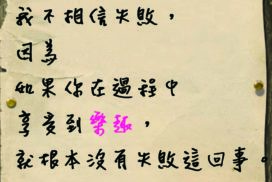 我不相信失敗，
因為
如果你在過程中
享受到樂趣，
就根本沒有失敗這回事。